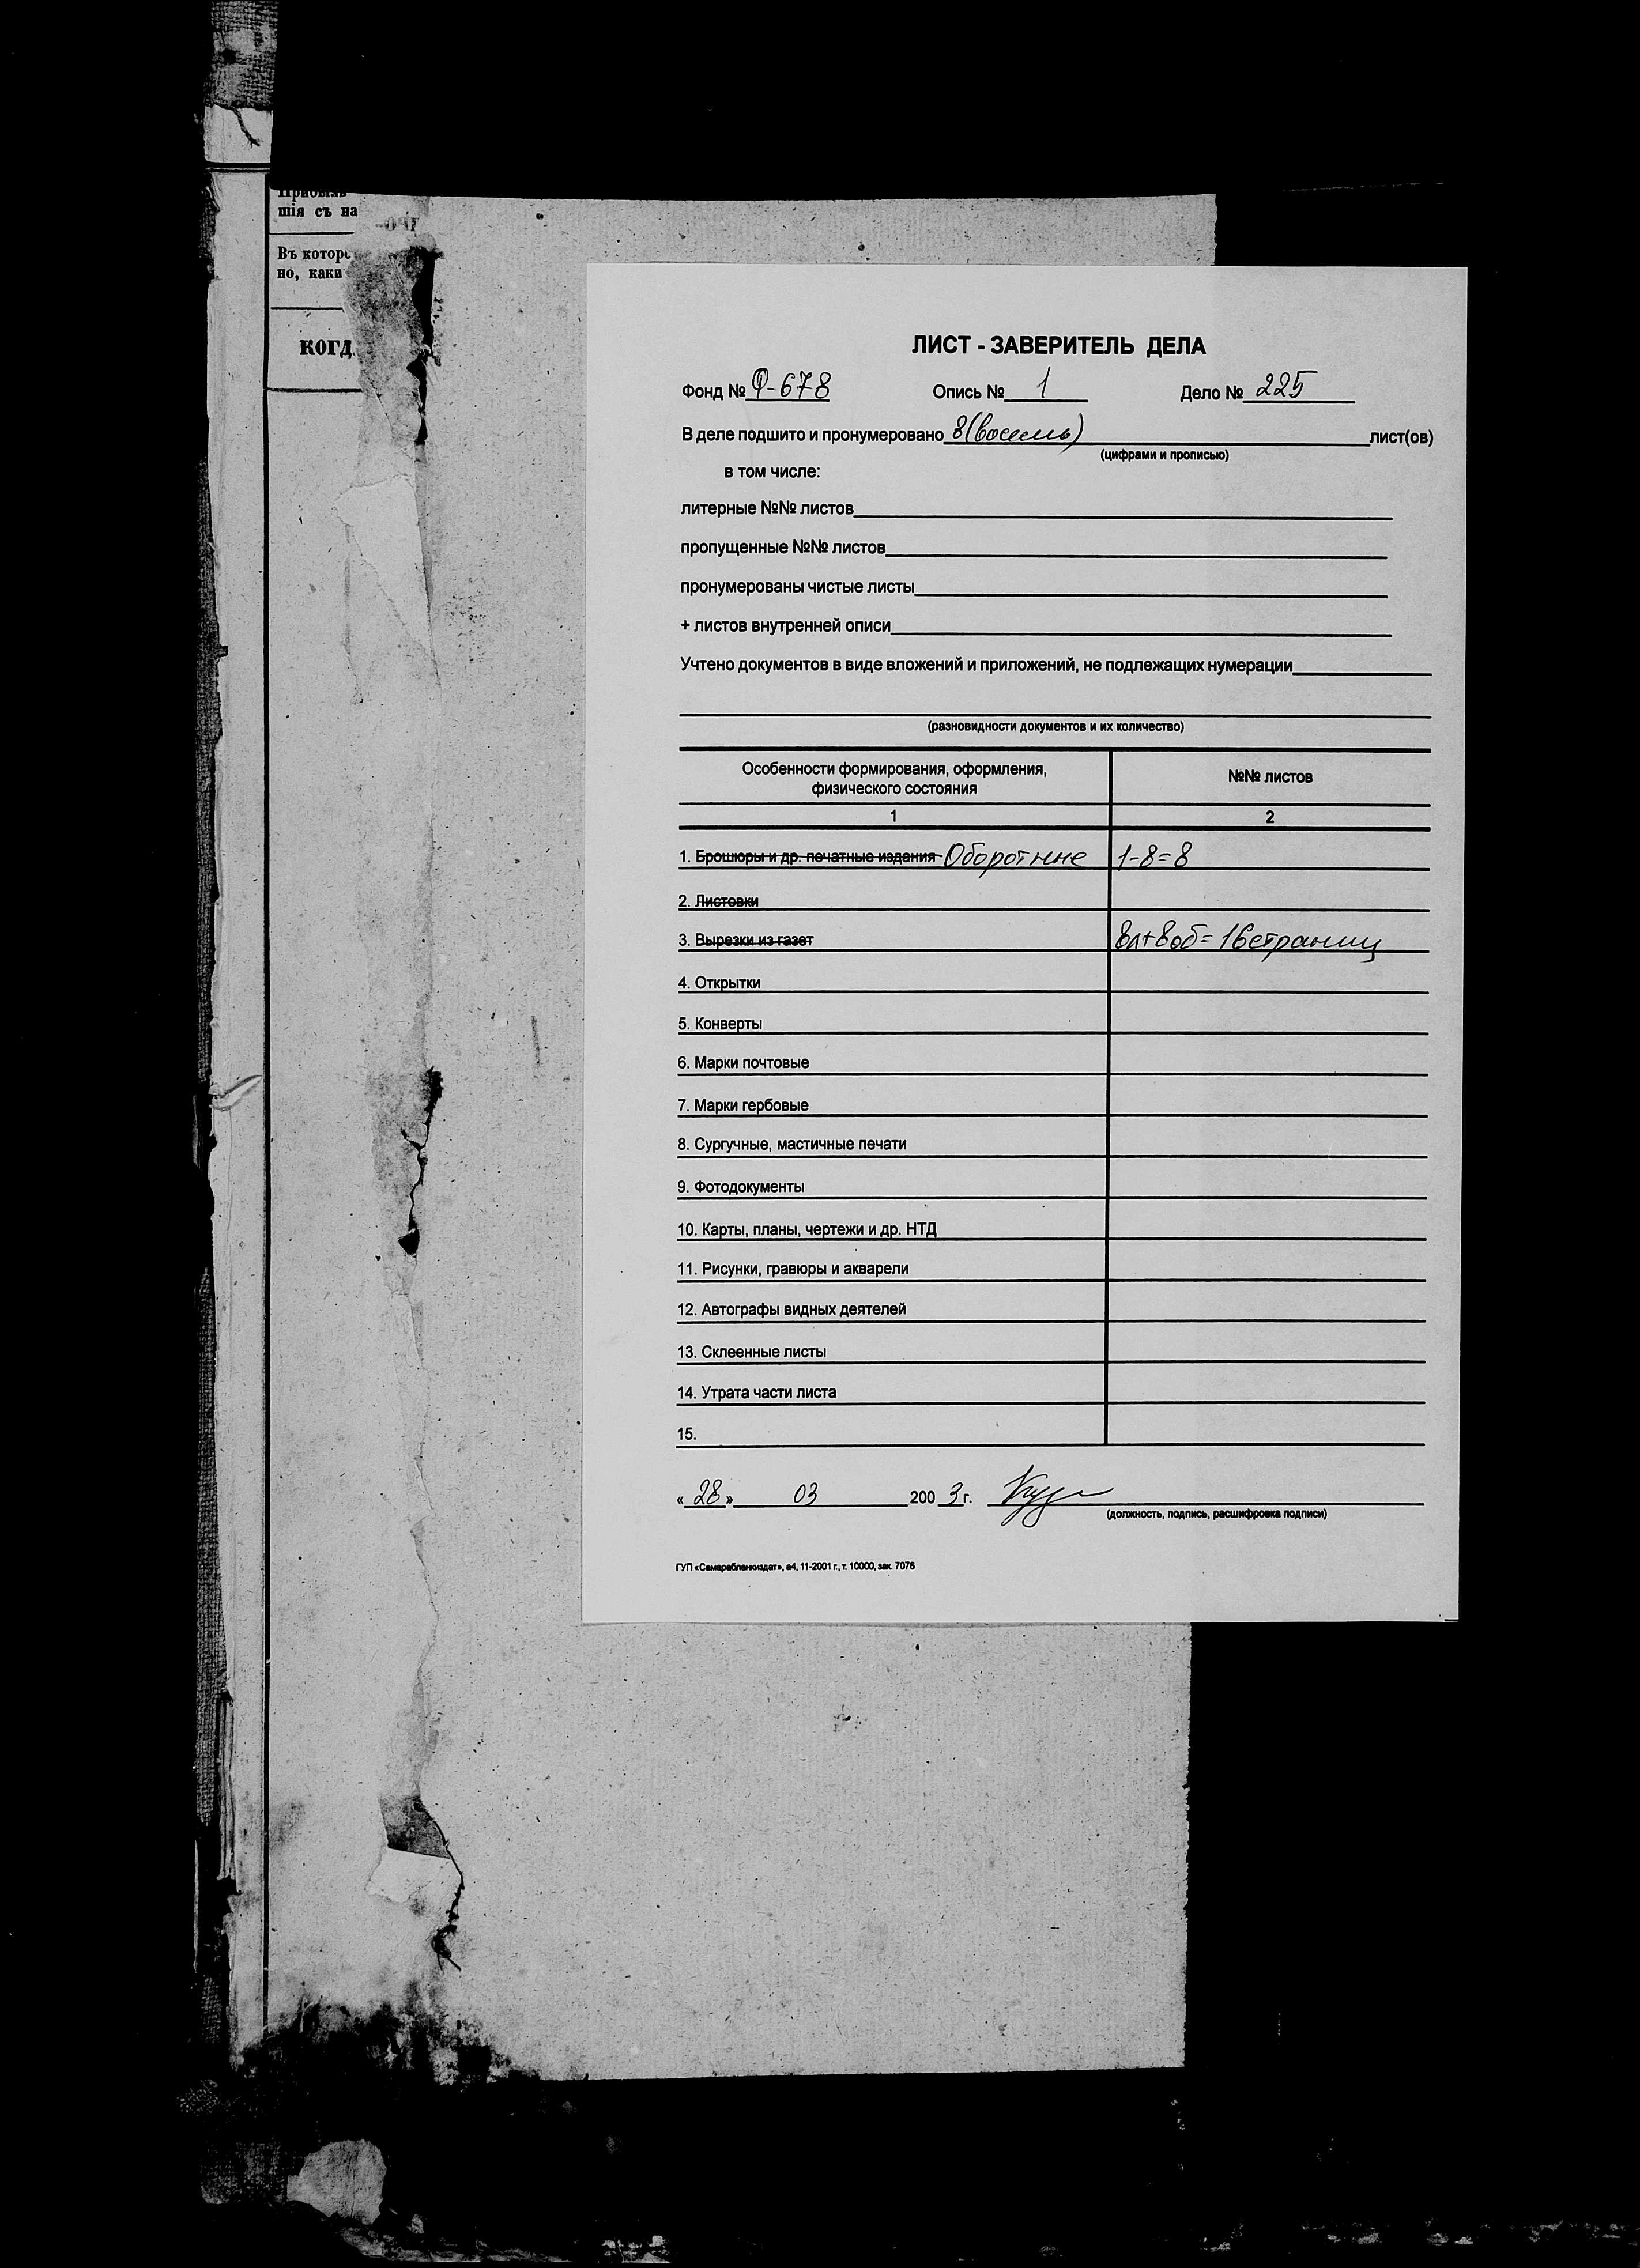 Прибыв-
шія съ на
Въ которо
но, каки
КОГД
ЛИСТ - ЗАВЕРИТЕЛЬ ДЕЛА
Фонд № Ф-678 Опись № 1 Дело № 225
В деле подшито и пронумеровано 8 (восемь) лист(ов)
(цифрами и прописью)
в том числе:
литерные №№ листов
пропущенные №№ листов
пронумерованы чистые листы
+ листов внутренней описи
Учтено документов в виде вложений и приложений, не подлежащих нумерации
(разновидности документов и их количество)
Особенности формирования, оформления, физического состояния №№ листов
1 2
1. Брошюры и др. печатные издания Оборотные 1-8=8
2. Листовки
3. Вырезки из газет 8л+8об=16страниц
4. Открытки
5. Конверты
6. Марки почтовые
7. Марки гербовые
8. Сургучные, мастичные печати
9. Фотодокументы
10. Карты, планы, чертежи и др. НТД
11. Рисунки, гравюры и акварели
12. Автографы видных деятелей
13. Склеенные листы
14. Утрата части листа
15.
«28» 03 2003 г.
(должность, подпись, расшифровка подписи)
ГУП «Самарабланкиздат», а4, 11-2001 г., т. 10000, зак. 7076